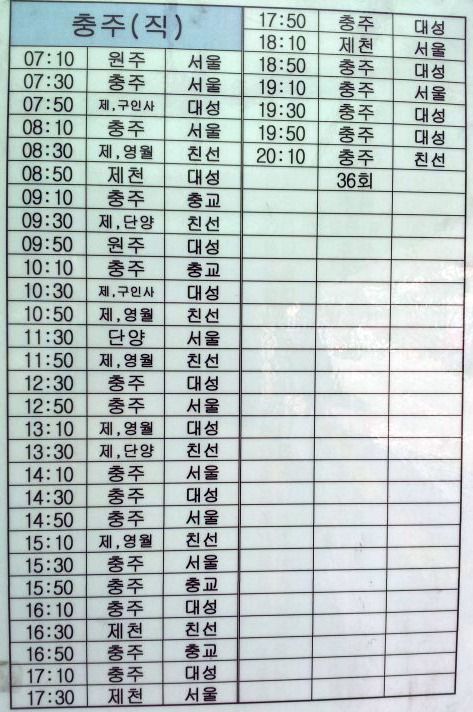 충주(직)
07:10 원주 서울
07:30 충주 서울
07:50 제,구인사 대성
08:10 충주 서울
08:30 제,영월 친선
08:50 제천 대성
09:10 충주 충교
09:30 제,단양 친선
09:50 원주 대성
10:10 충주 충교
10:30 제,구인사 대성
10:50 제,영월 친선
11:30 단양 서울
11:50 제,영월 친선
12:30 충주 대성
12:50 충주 서울
13:10 제,영월 대성
13:30 제,단양 친선
14:10 충주 서울
14:30 충주 대성
14:50 충주 서울
15:10 제,영월 친선
15:30 충주 서울
15:50 충주 충교
16:10 충주 대성
16:30 제천 친선
16:50 충주 충교
17:10 충주 대성
17:30 제천 서울
17:50 충주 대성
18:10 제천 서울
18:50 충주 대성
19:10 충주 서울
19:30 충주 대성
19:50 충주 대성
20:10 충주 친선
36회